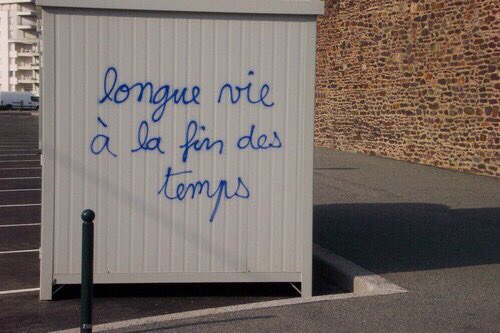 longue vie
à la fin des
temps